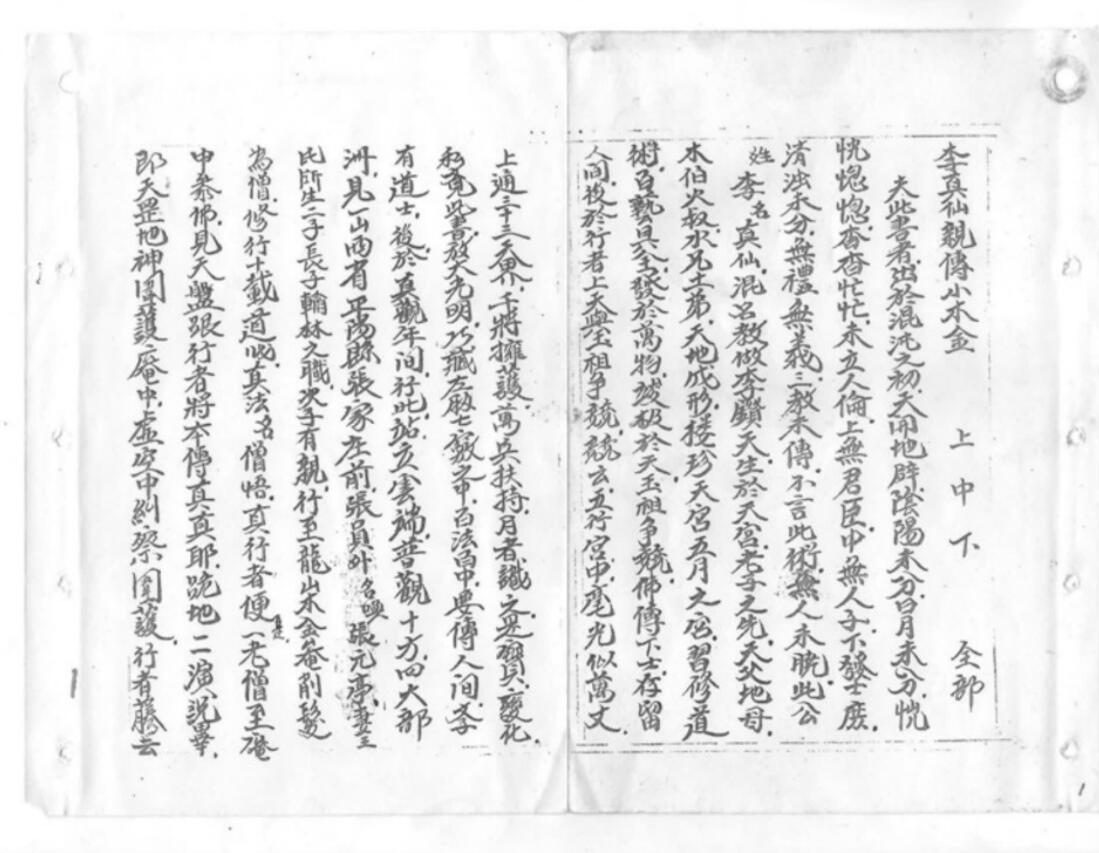 李真仙親傳小木金 上中下 全部
夫此書者出於混沌之初天開地辟陰陽未分日月未分恍
恍惚惚杳杳忙忙未立人倫上無君臣中無人子下發士庶
清濁未分無禮無義三教未傳不言此術無人未脫此公
姓李名真仙混名教做李鑽天生於天宮老子之先天父地母
木伯火叔水兄土弟天地成形接珍天宮五月之宮習修道
術百藝具全發於萬物破於天玉祖爭競佛傳下士存留
人間後於行者上天與玉祖爭競競云五行宮中毫光似萬丈
上通三十三天界千將擁護萬兵扶持月者識之是寶變化
私竟此書放大光明巧藏左廠七竅之中百法皆中要傳人間
有道士後於真觀年间行此站立雲端普觀十方四大部
洲見一山西省平陽縣張家庄前張員外名喚張元亭妻王
氏所生二子長子翰林之職次子有親行至龍山木金菴削髮
為僧修行十載道成真法名僧悟真行者便一老僧至菴
中泰佛見天盤張行者將本傳真真耶跪地二演説畢
即天罡地神圍護庵中虛空中糾察圍護行者藤云
1